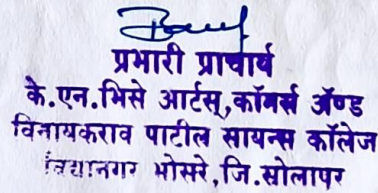 प्रभारी प्राचार्य
के.एन.भिसे आर्टस्,कॉमर्स ॲण्ड
विनायकराव पाटील सायन्स कॉलेज
विद्यानगर भोसरे,जि.सोलापर